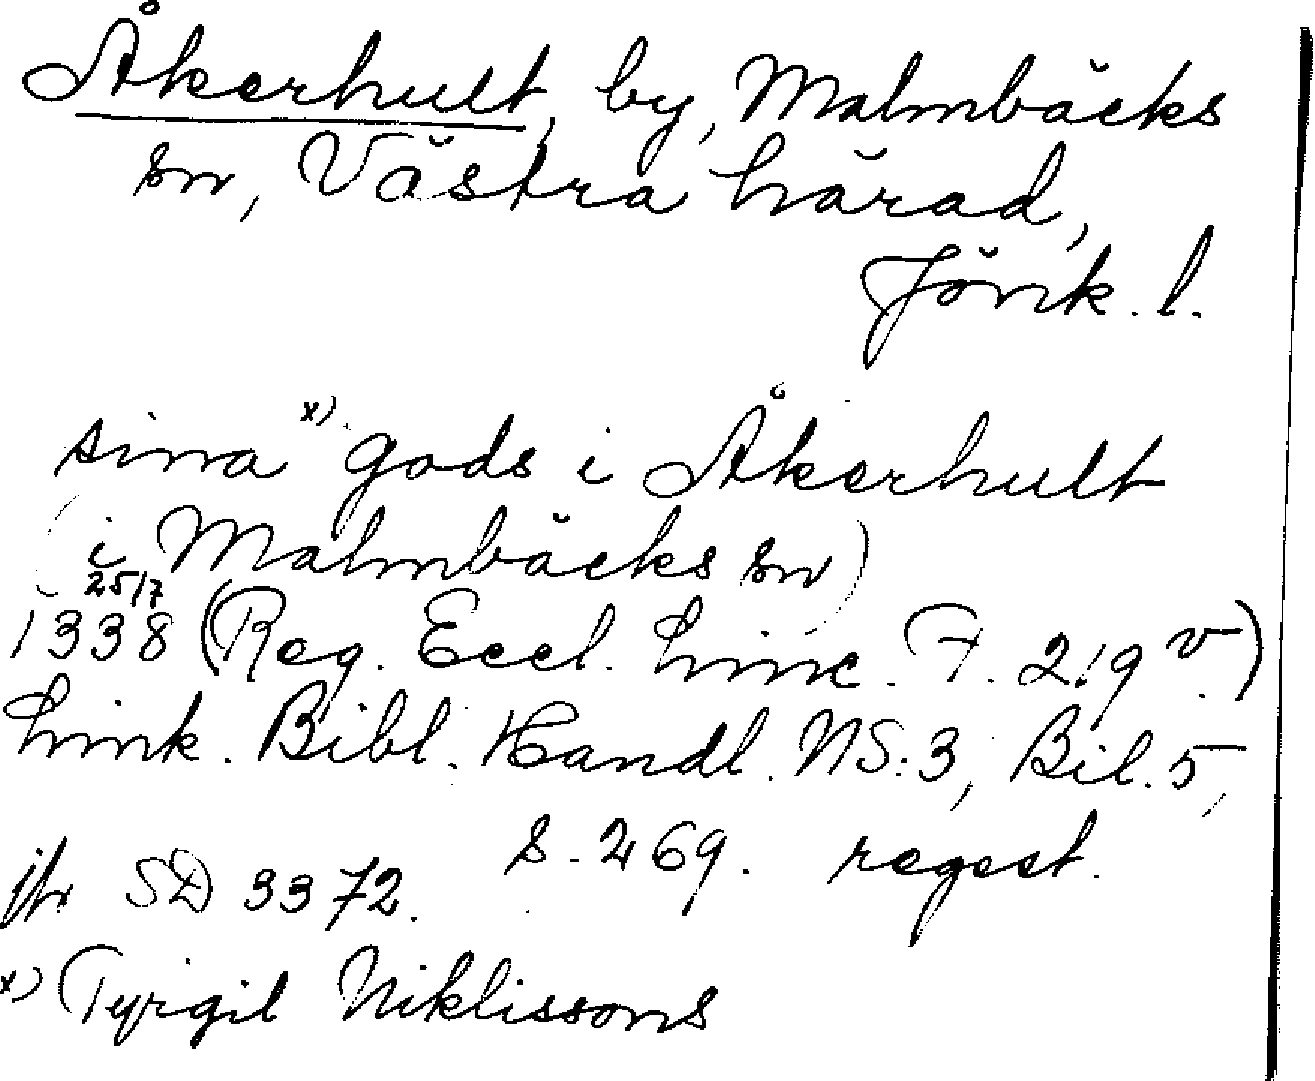 Åkerhult, by, Malmbäcks
sn, Västra härad,
Jönk. l.
sina x) gods i Åkerhult
(i Malmbäcks sn)
25/7
1338 (Reg. Eccl. Linc. F. 219 v.)
Link. Bibl. Handl. NS:3, Bil. 5,
s. 269. regest.
jfr SD 3372.
x) Tyrgil Niklissons